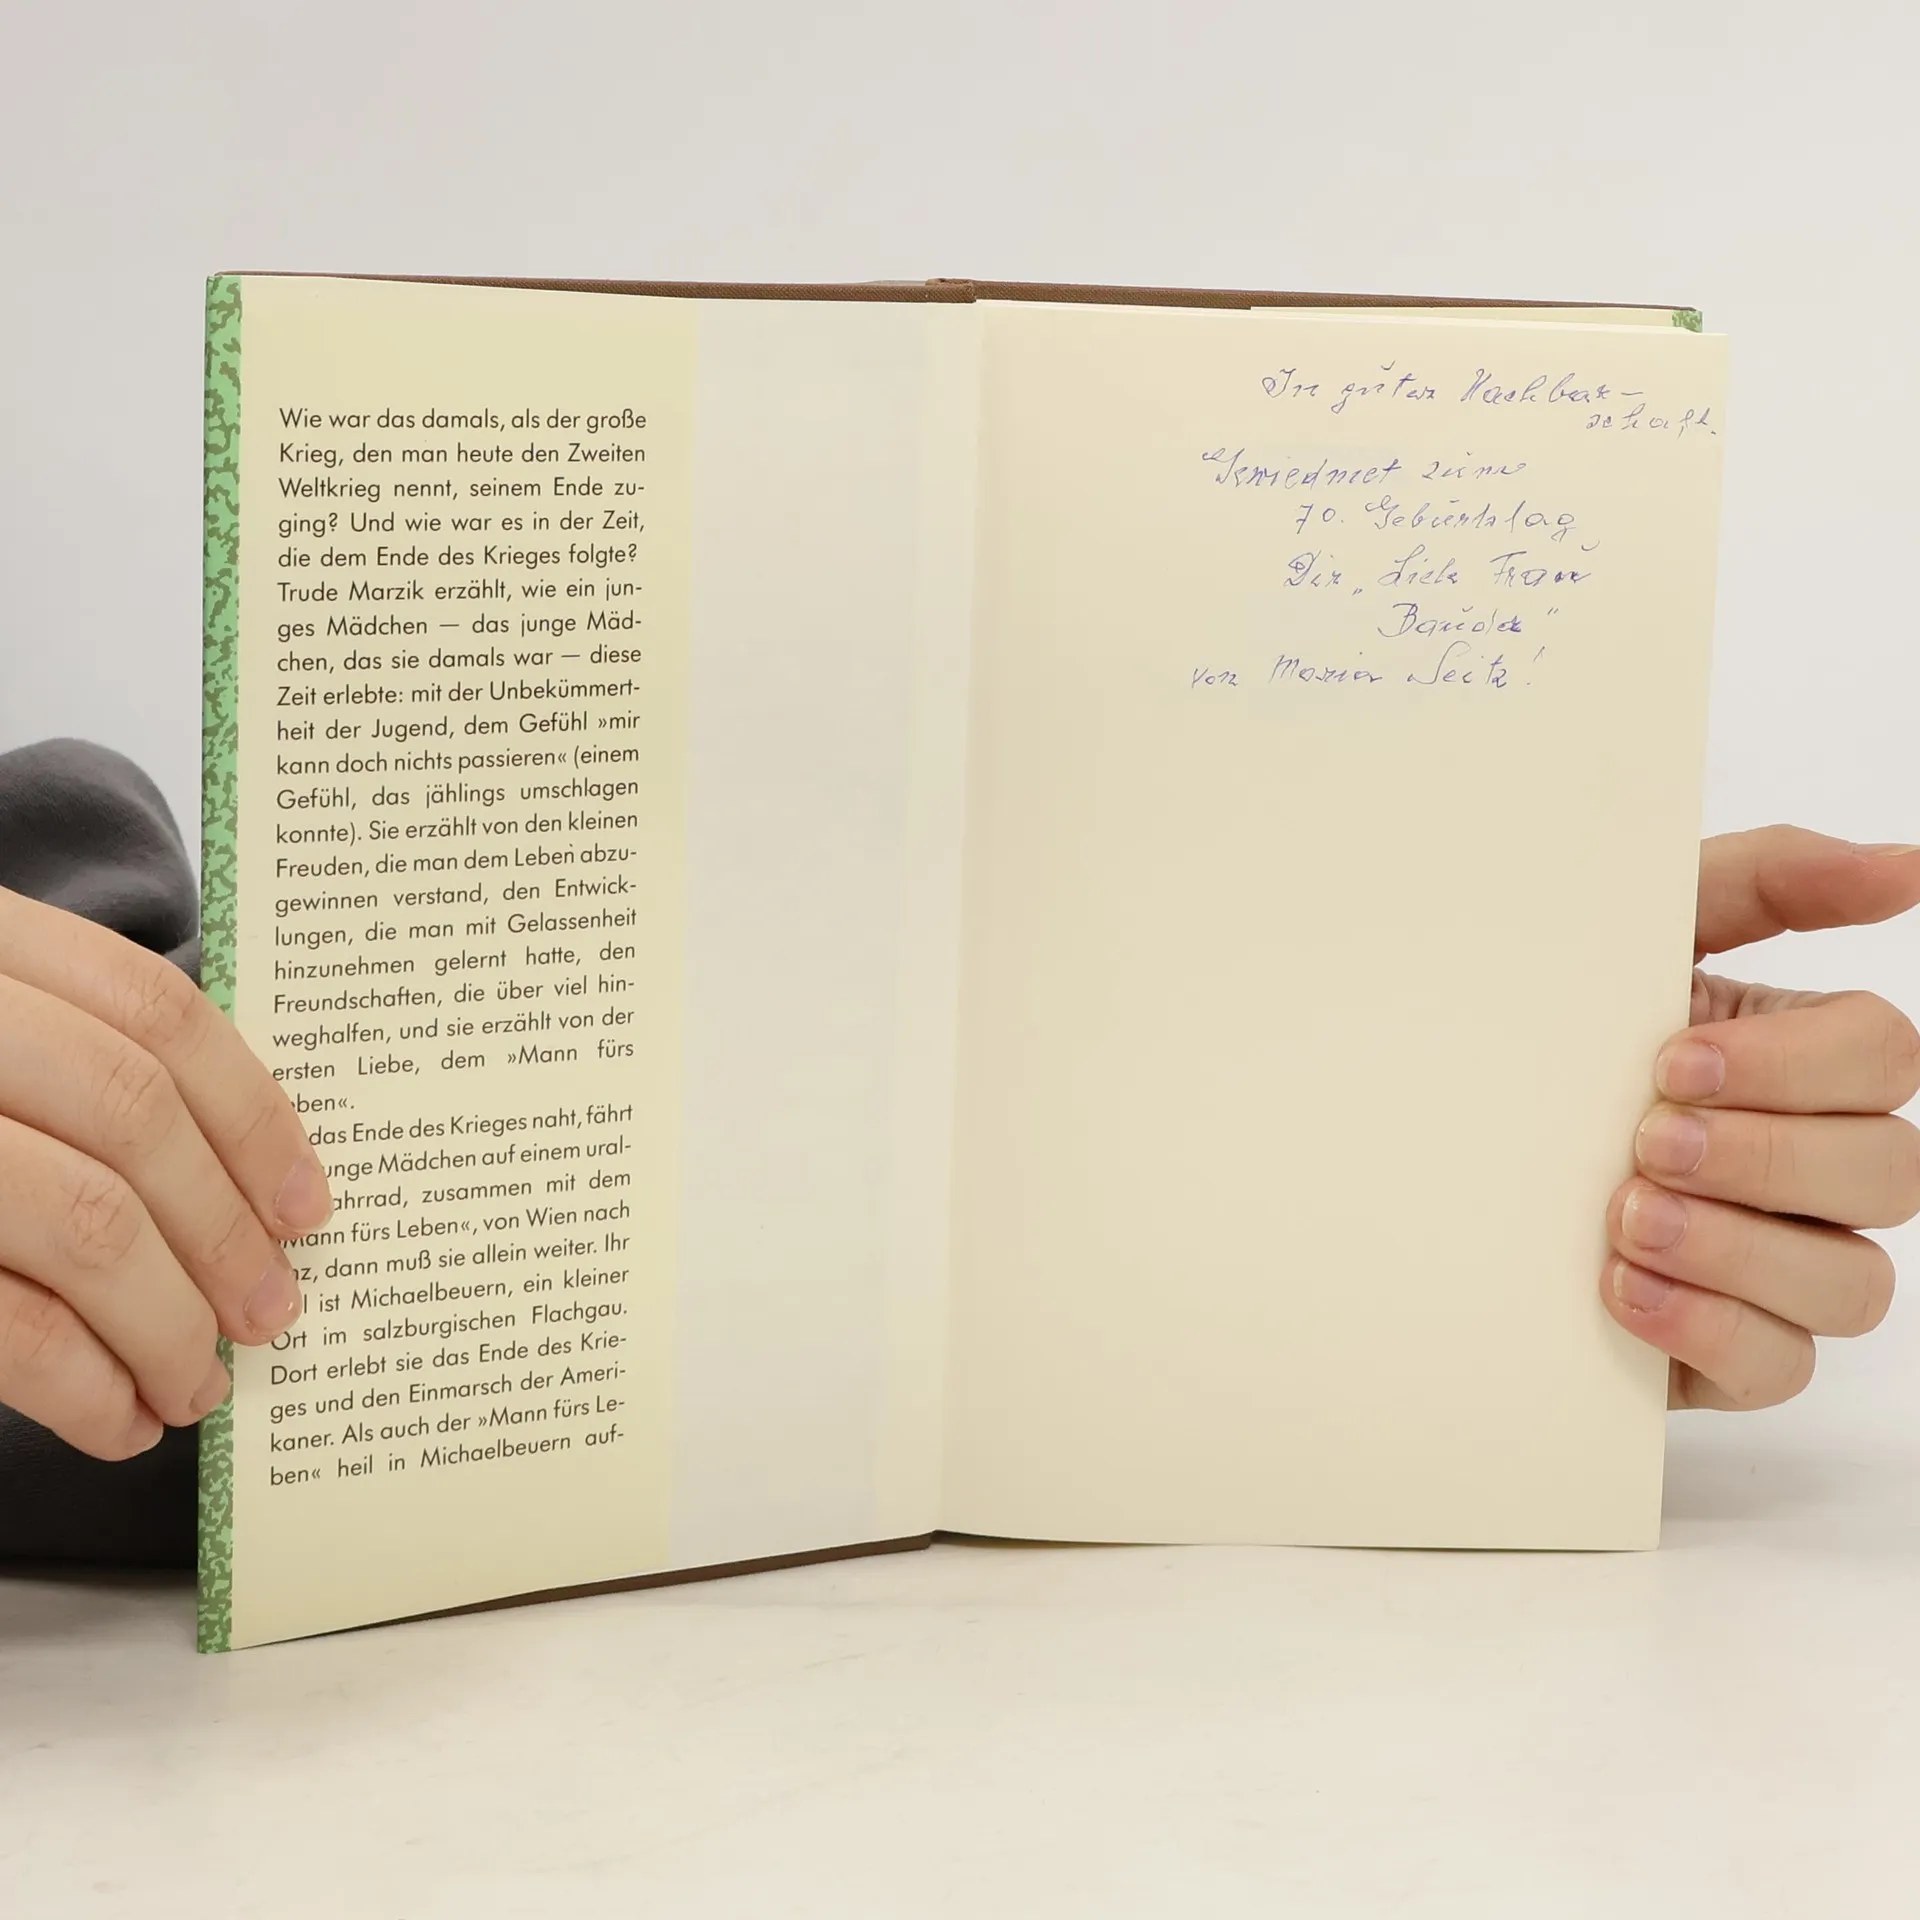 Wie war das damals, als der große
Krieg, den man heute den Zweiten
Weltkrieg nennt, seinem Ende zu-
ging? Und wie war es in der Zeit,
die dem Ende des Krieges folgte?
Trude Marzik erzählt, wie ein jun-
ges Mädchen — das junge Mäd-
chen, das sie damals war — diese
Zeit erlebte: mit der Unbekümmert-
heit der Jugend, dem Gefühl »mir
kann doch nichts passieren« (einem
Gefühl, das jählings umschlagen
konnte). Sie erzählt von den kleinen
Freuden, die man dem Leben abzu-
gewinnen verstand, den Entwick-
lungen, die man mit Gelassenheit
hinzunehmen gelernt hatte, den
Freundschaften, die über viel hin-
weghalfen, und sie erzählt von der
ersten Liebe, dem »Mann fürs
ben«.
das Ende des Krieges naht, fährt
unge Mädchen auf einem ural-
ahrrad, zusammen mit dem
»Mann fürs Leben«, von Wien nach
nz, dann muß sie allein weiter. Ihr
l ist Michaelbeuern, ein kleiner
Ort im salzburgischen Flachgau.
Dort erlebt sie das Ende des Krie-
ges und den Einmarsch der Ameri-
kaner. Als auch der »Mann fürs Le-
ben« heil in Michaelbeuern auf-
In guter Nachbar-
schaft.
Gewiedmet zum
70. Geburtstag
Dir „Liebe Frau
Bauda"
von Maria Seitz!